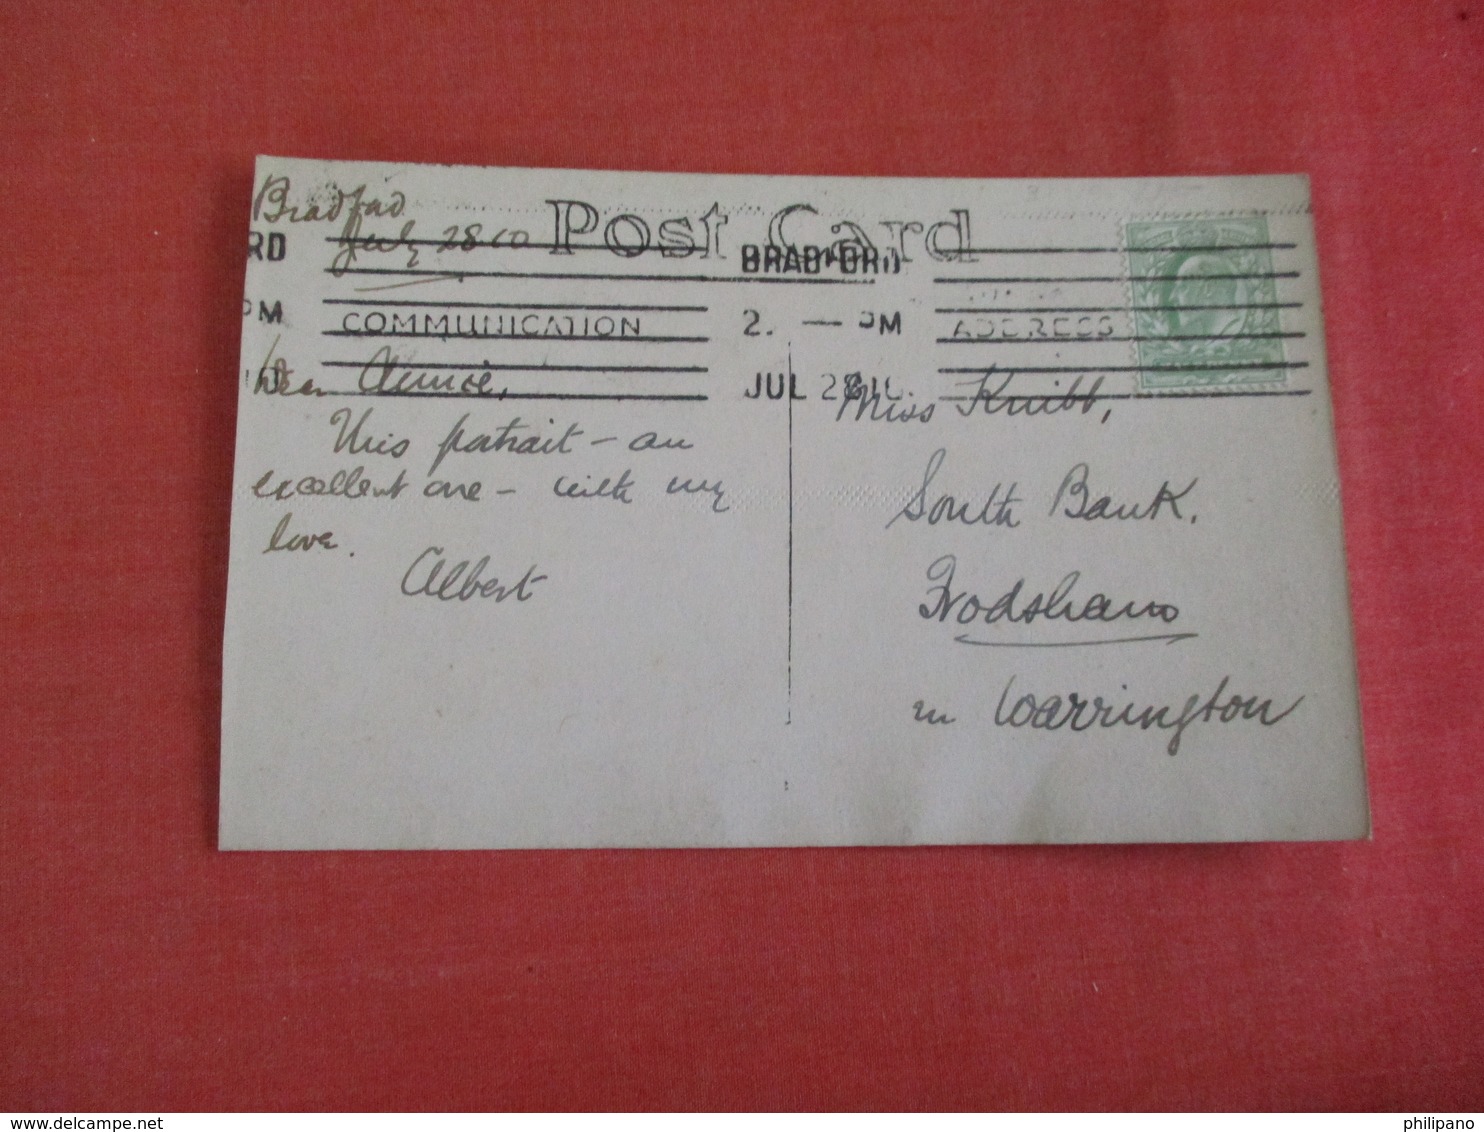 Post Card
Bradford
July 28 10
RD
BRADFORD
PM
COMMUNICATION
2. — PM
ADDRESS
JUL 28 10.
Dear Annie,
This portrait – an
excellent one – with my
love.
Albert
Miss Knibb,
South Bank.
Frodsham
nr Warrington
delcampe.net
philipano